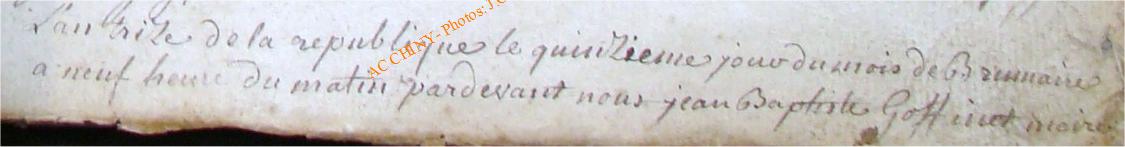 L'an trize de la republique le quinzieme jour du mois de Brumaire
a neuf heure du matin pardevant nous jean Baptiste Goffinet maire
AC CHINY - Photos: J.C